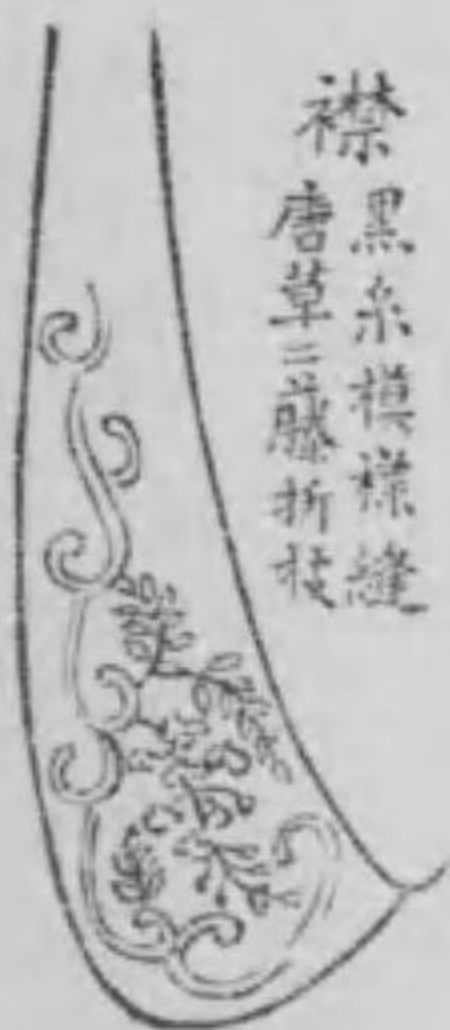 襟 黒糸模様縫
唐草ニ藤折枝